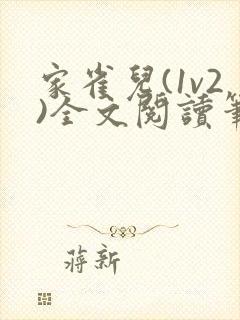 家雀兒(1v2
)全文閱讀
蔣新